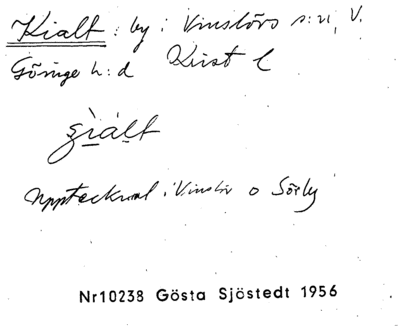 Kialt : by i Vinslövs s:n, V.
Göinge h:d Krist l
ʒiàlt
Upptecknat i Vinslöv o Sörby
Nr10238 Gösta Sjöstedt 1956